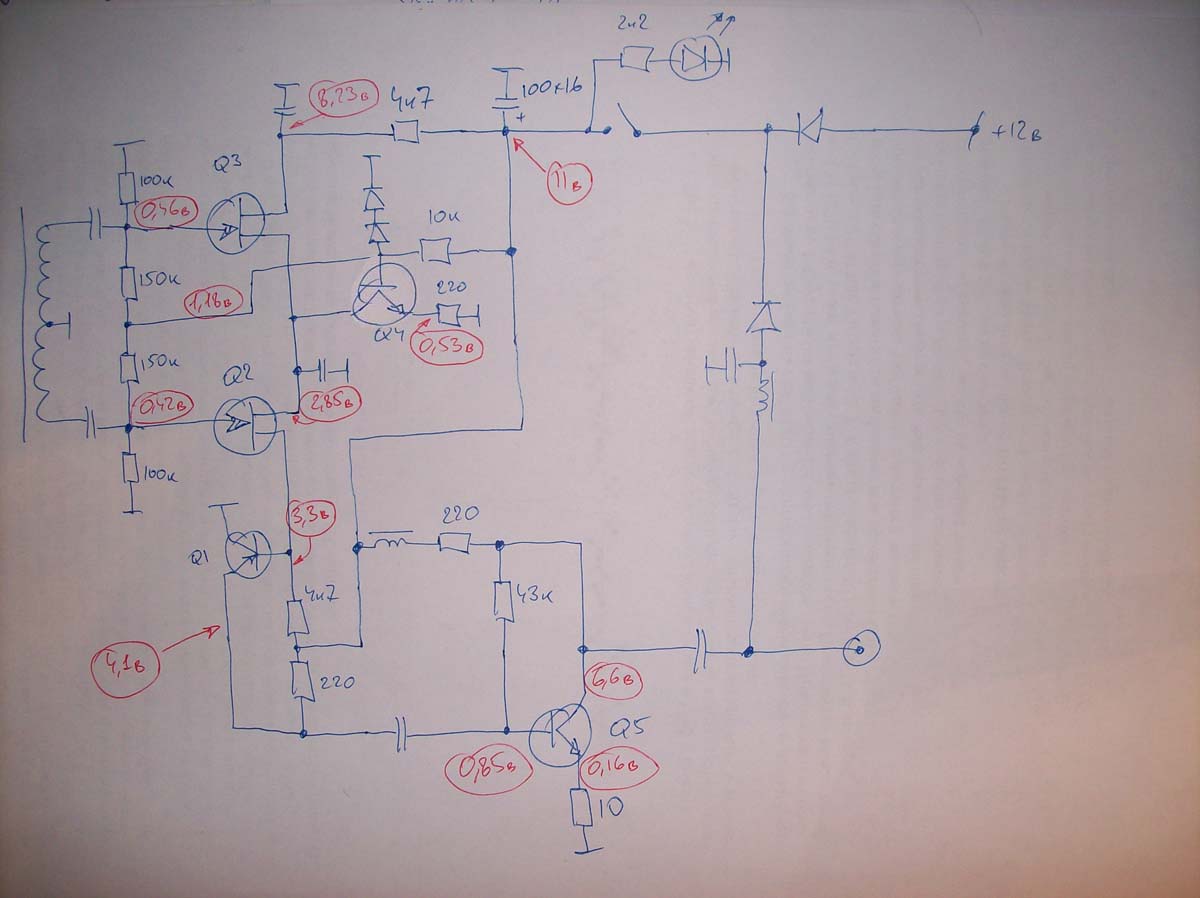 2к2
8,23в
4к7
100x16
+12в
Q3
100к
0,46в
11в
10к
150к
1,18в
220
Q4
0,53в
150к
Q2
0,42в
2,85в
100к
3,3в
220
Q1
4к7
43к
4,1в
220
6,6в
Q5
0,85в
0,16в
10